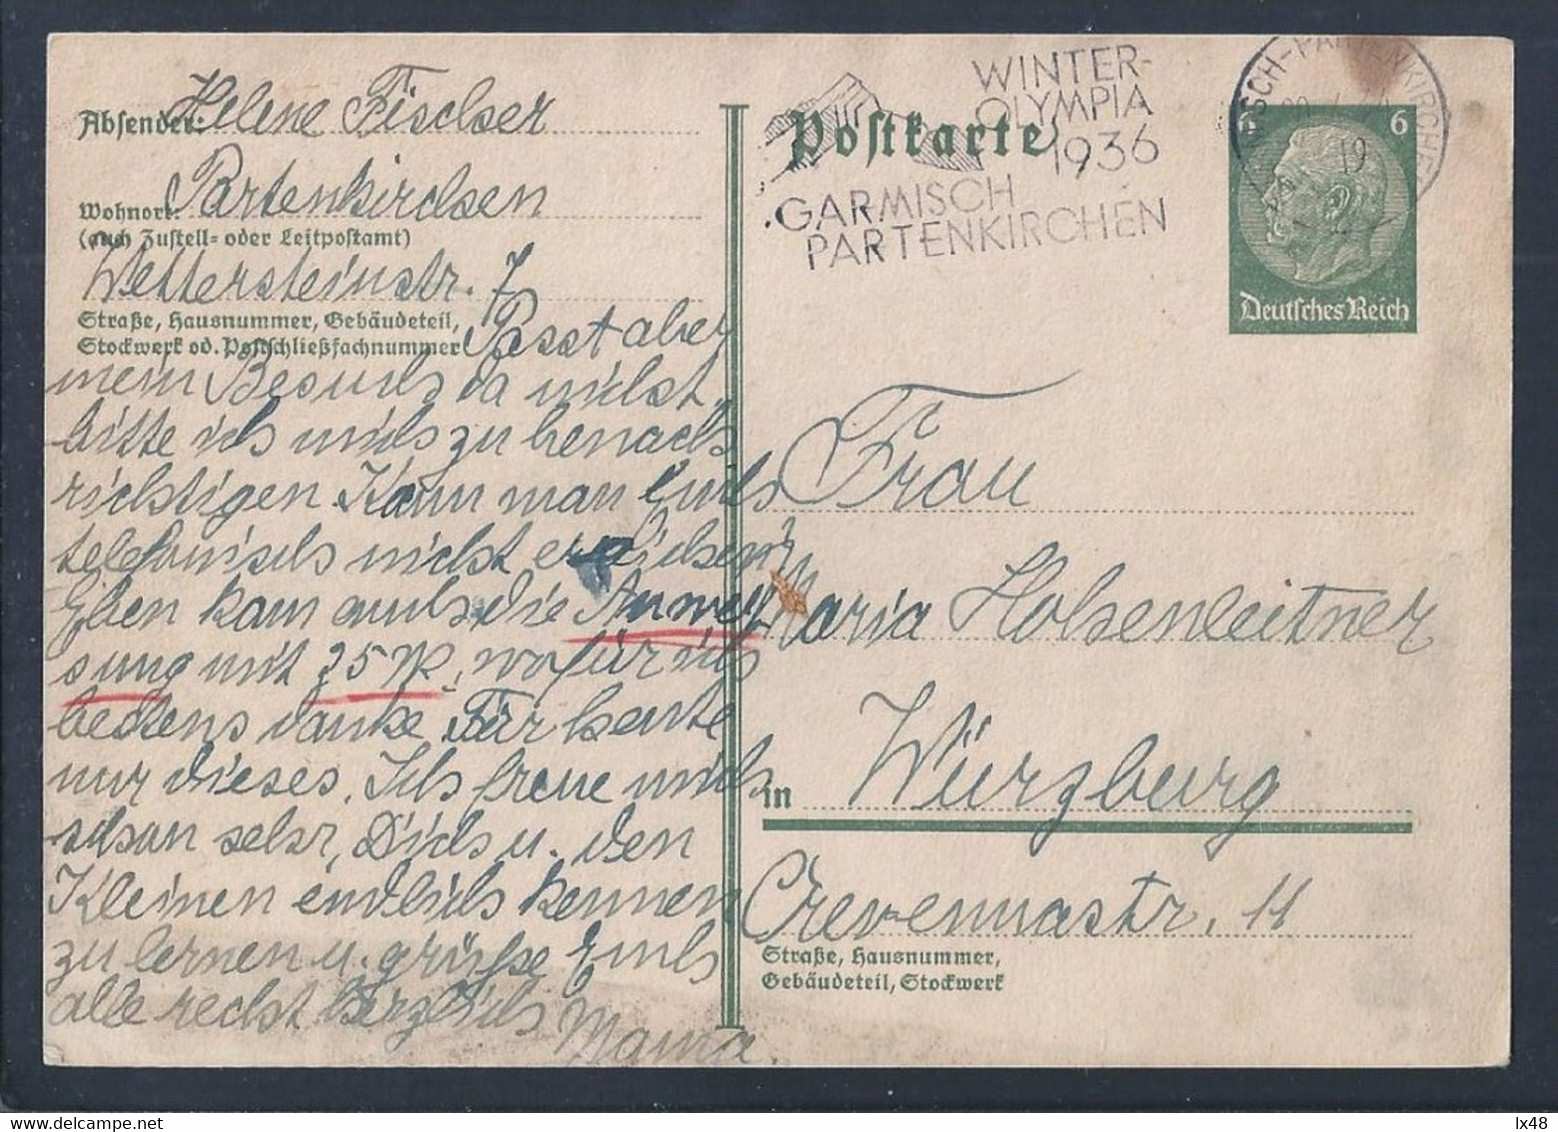 Absender: Helene Fischer
Wohnort: Partenkirchen
(auch Zustell- oder Leitpostamt)
Wettersteinstr. 7
Straße, Hausnummer, Gebäudeteil,
Stockwerk od. Postschließfachnummer
Passt aber
mein Besuch da nicht,
bitte ich mich zu benach
richtigen. Kann man Euch
telefonisch nicht erreichen?
Eben kam auch die Anwei
sung mit 25 M, wofür ich
bestens danke. Für heute
nur dieses. Ich freue mich
schon sehr, Dich u. den
Kleinen endlich kennen
zu lernen u. grüße Euch
alle recht herzlich
Mama.
WINTER-
OLYMPIA
1936
GARMISCH
PARTENKIRCHEN
Postkarte
MISCH-PARTENKIRCHEN
19
6 6
Deutsches Reich
Frau
Maria Hohenleitner
in Würzburg
Crevennastr. 11
Straße, Hausnummer,
Gebäudeteil, Stockwerk
lx48